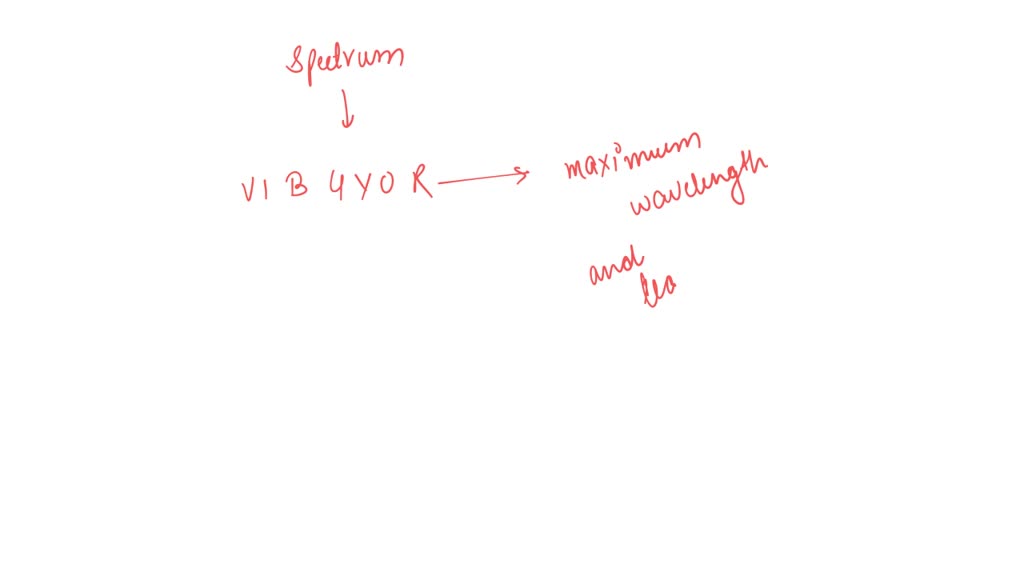 Spectrum
VIB GYOR
maximum
wavelength
and
lea